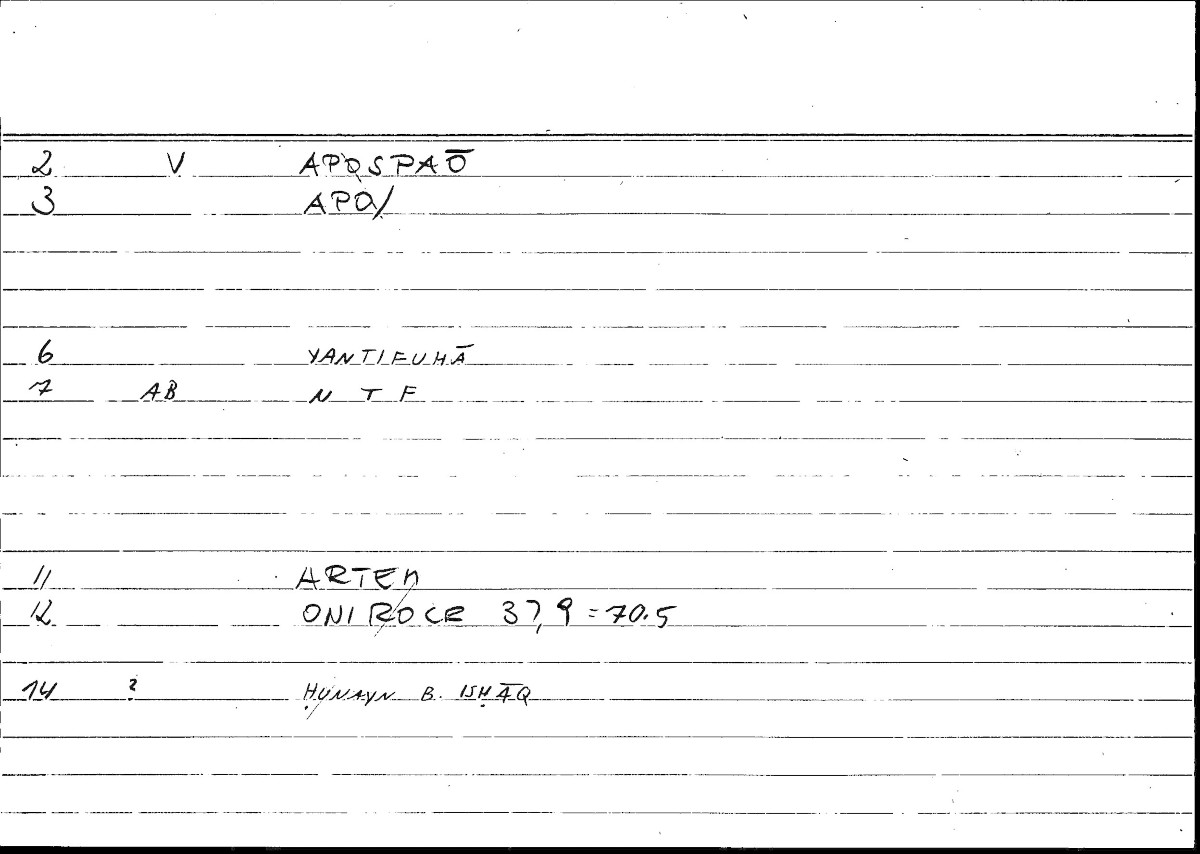 2 V APOSPAŌ
3 APO/
6 YANTIFUHĀ
7 AB N T F
11 ARTEM
12 ONIROCR 37,9 = 70.5
14 ? ḤUNAYN B. ISḤĀQ